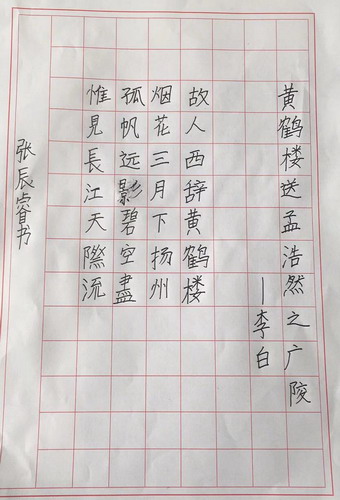 黄鹤楼送孟浩然之广陵
—李白
故人西辞黄鹤楼
烟花三月下扬州
孤帆远影碧空盡
惟見長江天際流
张辰睿书